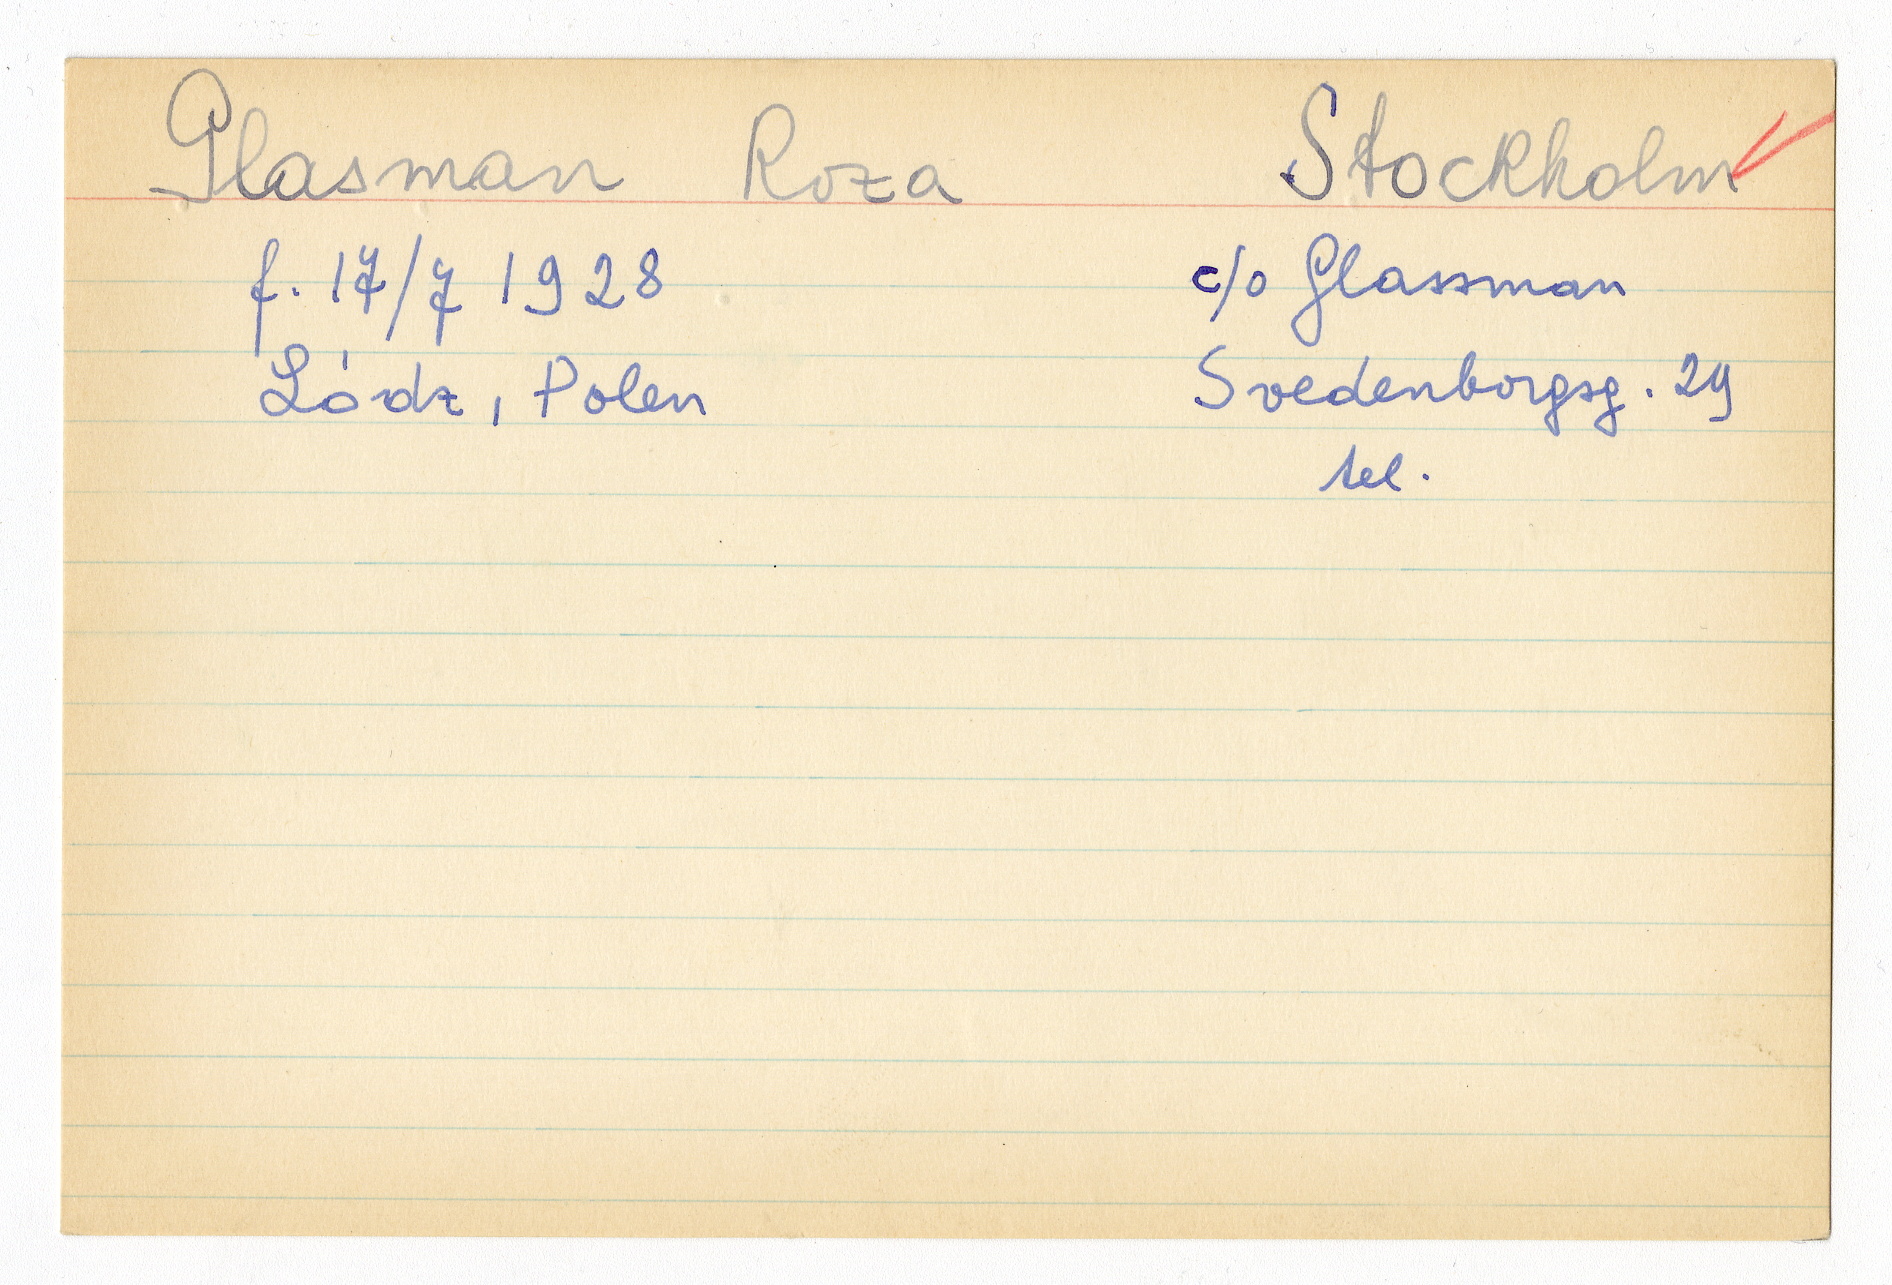 Glasman Roza Stockholm
f. 17/7 1928 c/o Glassman
Lódz, Polen Svedenborgsg. 29
tel.